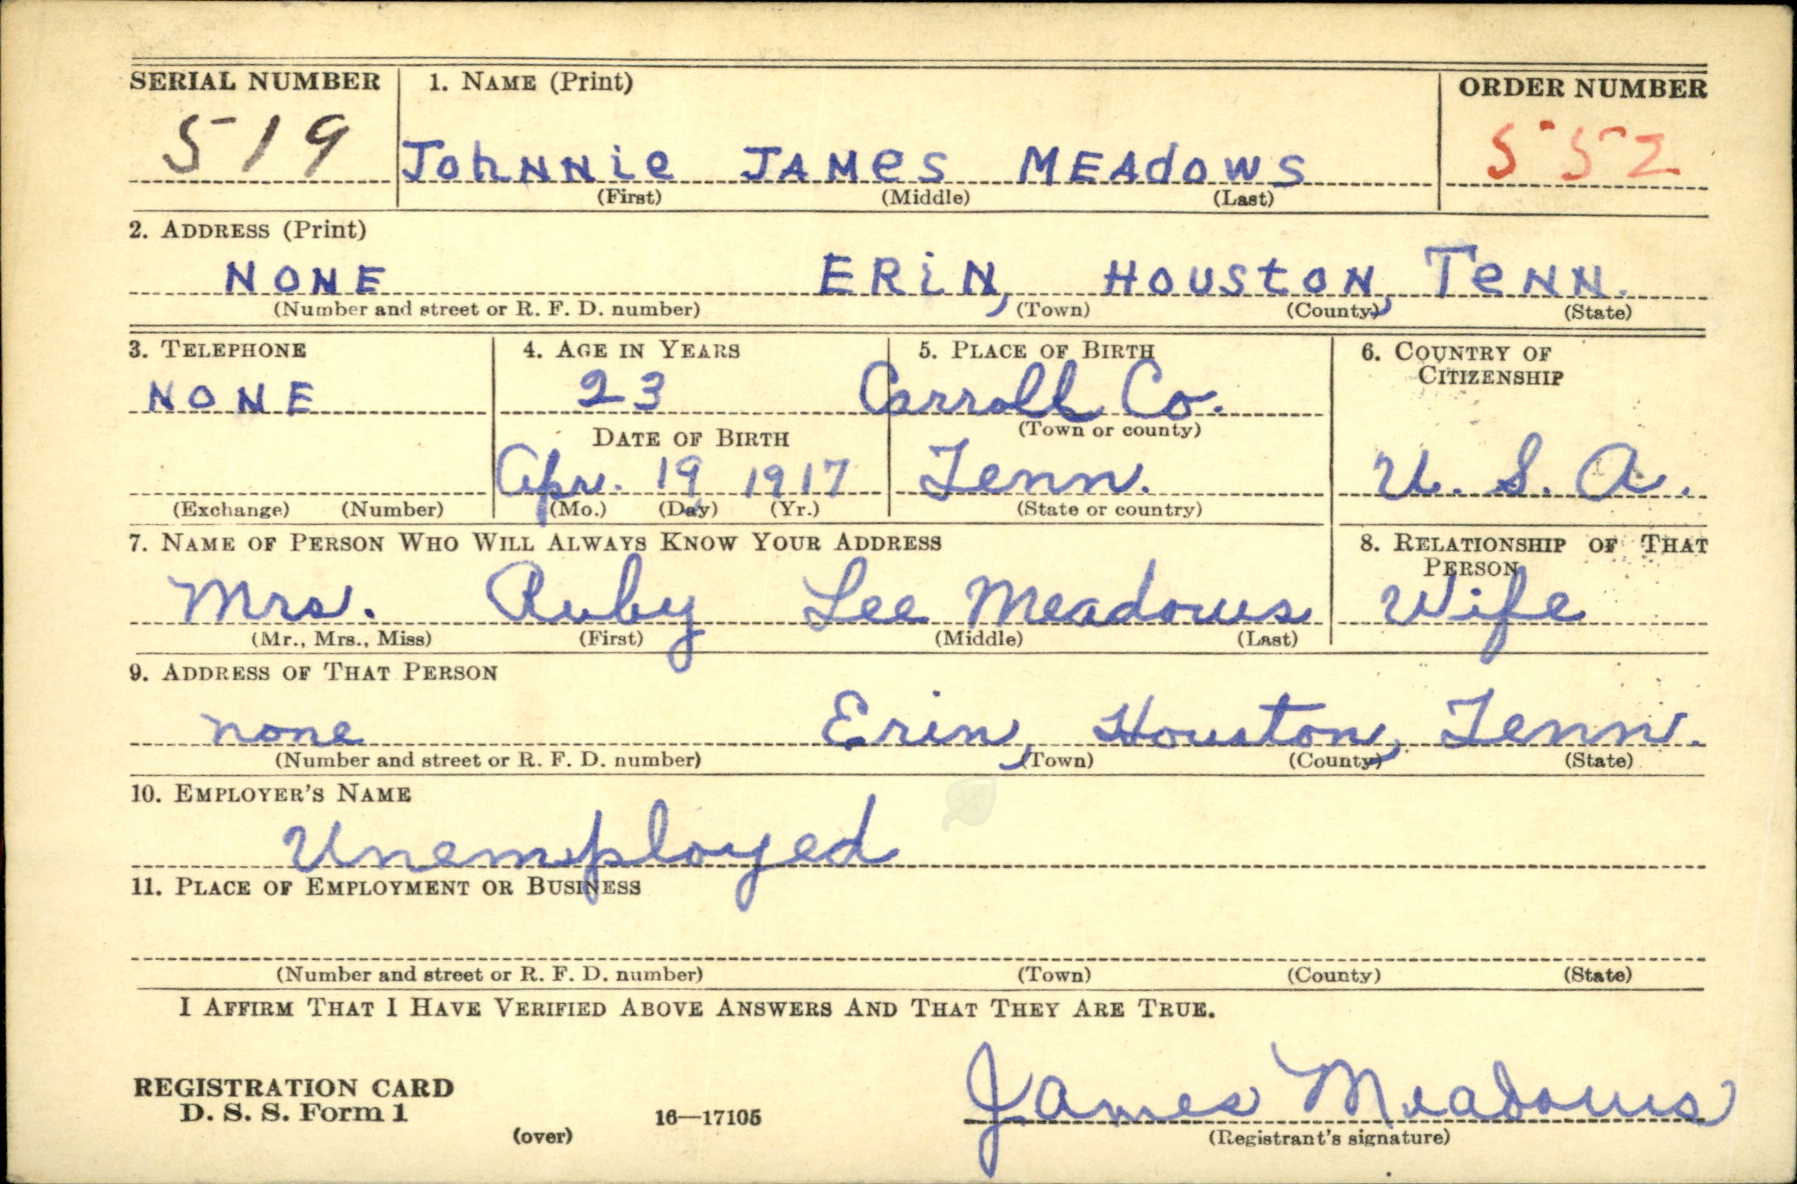 SERIAL NUMBER 1. NAME (Print) ORDER NUMBER
519 JohNNie JAMes MEAdows 552
(First) (Middle) (Last)
2. ADDRESS (Print)
NONE ERiN, HOUStoN, TeNN.
(Number and street or R. F. D. number) (Town) (County) (State)
3. TELEPHONE 4. AGE IN YEARS 5. PLACE OF BIRTH 6. COUNTRY OF CITIZENSHIP
NONE 23 Carroll Co.
DATE OF BIRTH (Town or county)
Apr. 19 1917 Tenn. U. S. A.
(Exchange) (Number) (Mo.) (Day) (Yr.) (State or country)
7. NAME OF PERSON WHO WILL ALWAYS KNOW YOUR ADDRESS 8. RELATIONSHIP OF THAT PERSON
Mrs. Ruby Lee Meadows Wife
(Mr., Mrs., Miss) (First) (Middle) (Last)
9. ADDRESS OF THAT PERSON
none Erin, Houston, Tenn.
(Number and street or R. F. D. number) (Town) (County) (State)
10. EMPLOYER'S NAME
Unemployed
11. PLACE OF EMPLOYMENT OR BUSINESS
(Number and street or R. F. D. number) (Town) (County) (State)
I AFFIRM THAT I HAVE VERIFIED ABOVE ANSWERS AND THAT THEY ARE TRUE.
REGISTRATION CARD
D. S. S. Form 1 16—17105 James Meadows
(over) (Registrant's signature)